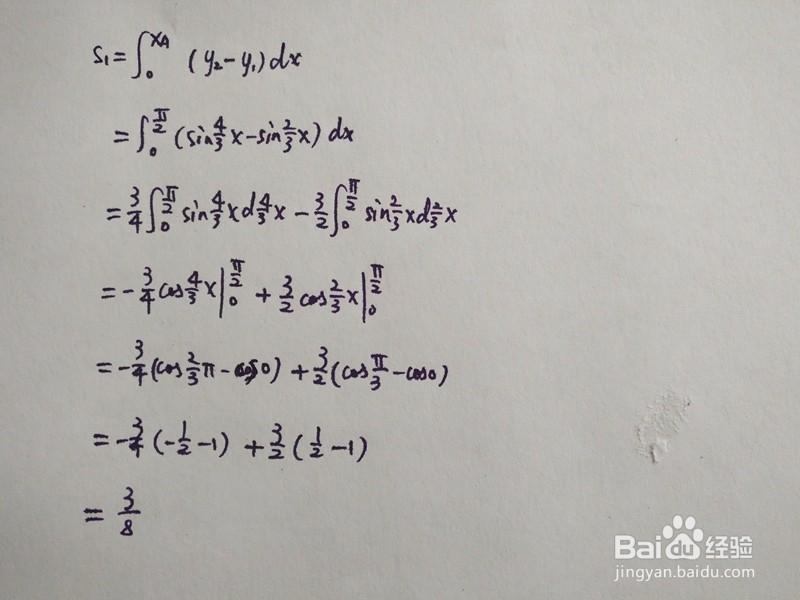 S₁=∫₀^{XA} (y₂-y₁)dx
=∫₀^{π/2}(sin4/3x-sin2/3x)dx
=3/4∫₀^{π/2}sin4/3xd4/3x-3/2∫₀^{π/2}sin2/3xd2/3x
=-3/4cos4/3x|₀^{π/2}+3/2cos2/3x|₀^{π/2}
=-3/4(cos2/3π-cos0)+3/2(cosπ/3-cos0)
=-3/4(-1/2-1)+3/2(1/2-1)
=3/8
Baidu经验
jingyan.baidu.com